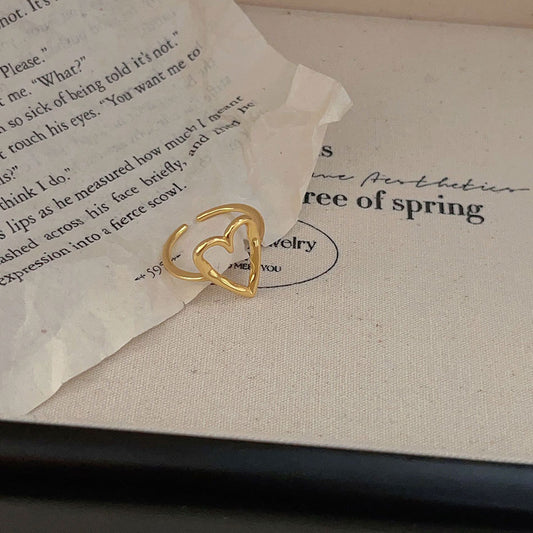 not. It's
Please."
t me. "What?"
n so sick of being told it's not."
"You want me to
t touch his eyes.
is?"
think I do."
s lips as he measured how much I meant
ashed across his face briefly, and had he
expression into a fierce scowl.
s
Aesthetics
ree of spring
welry
MEE YOU